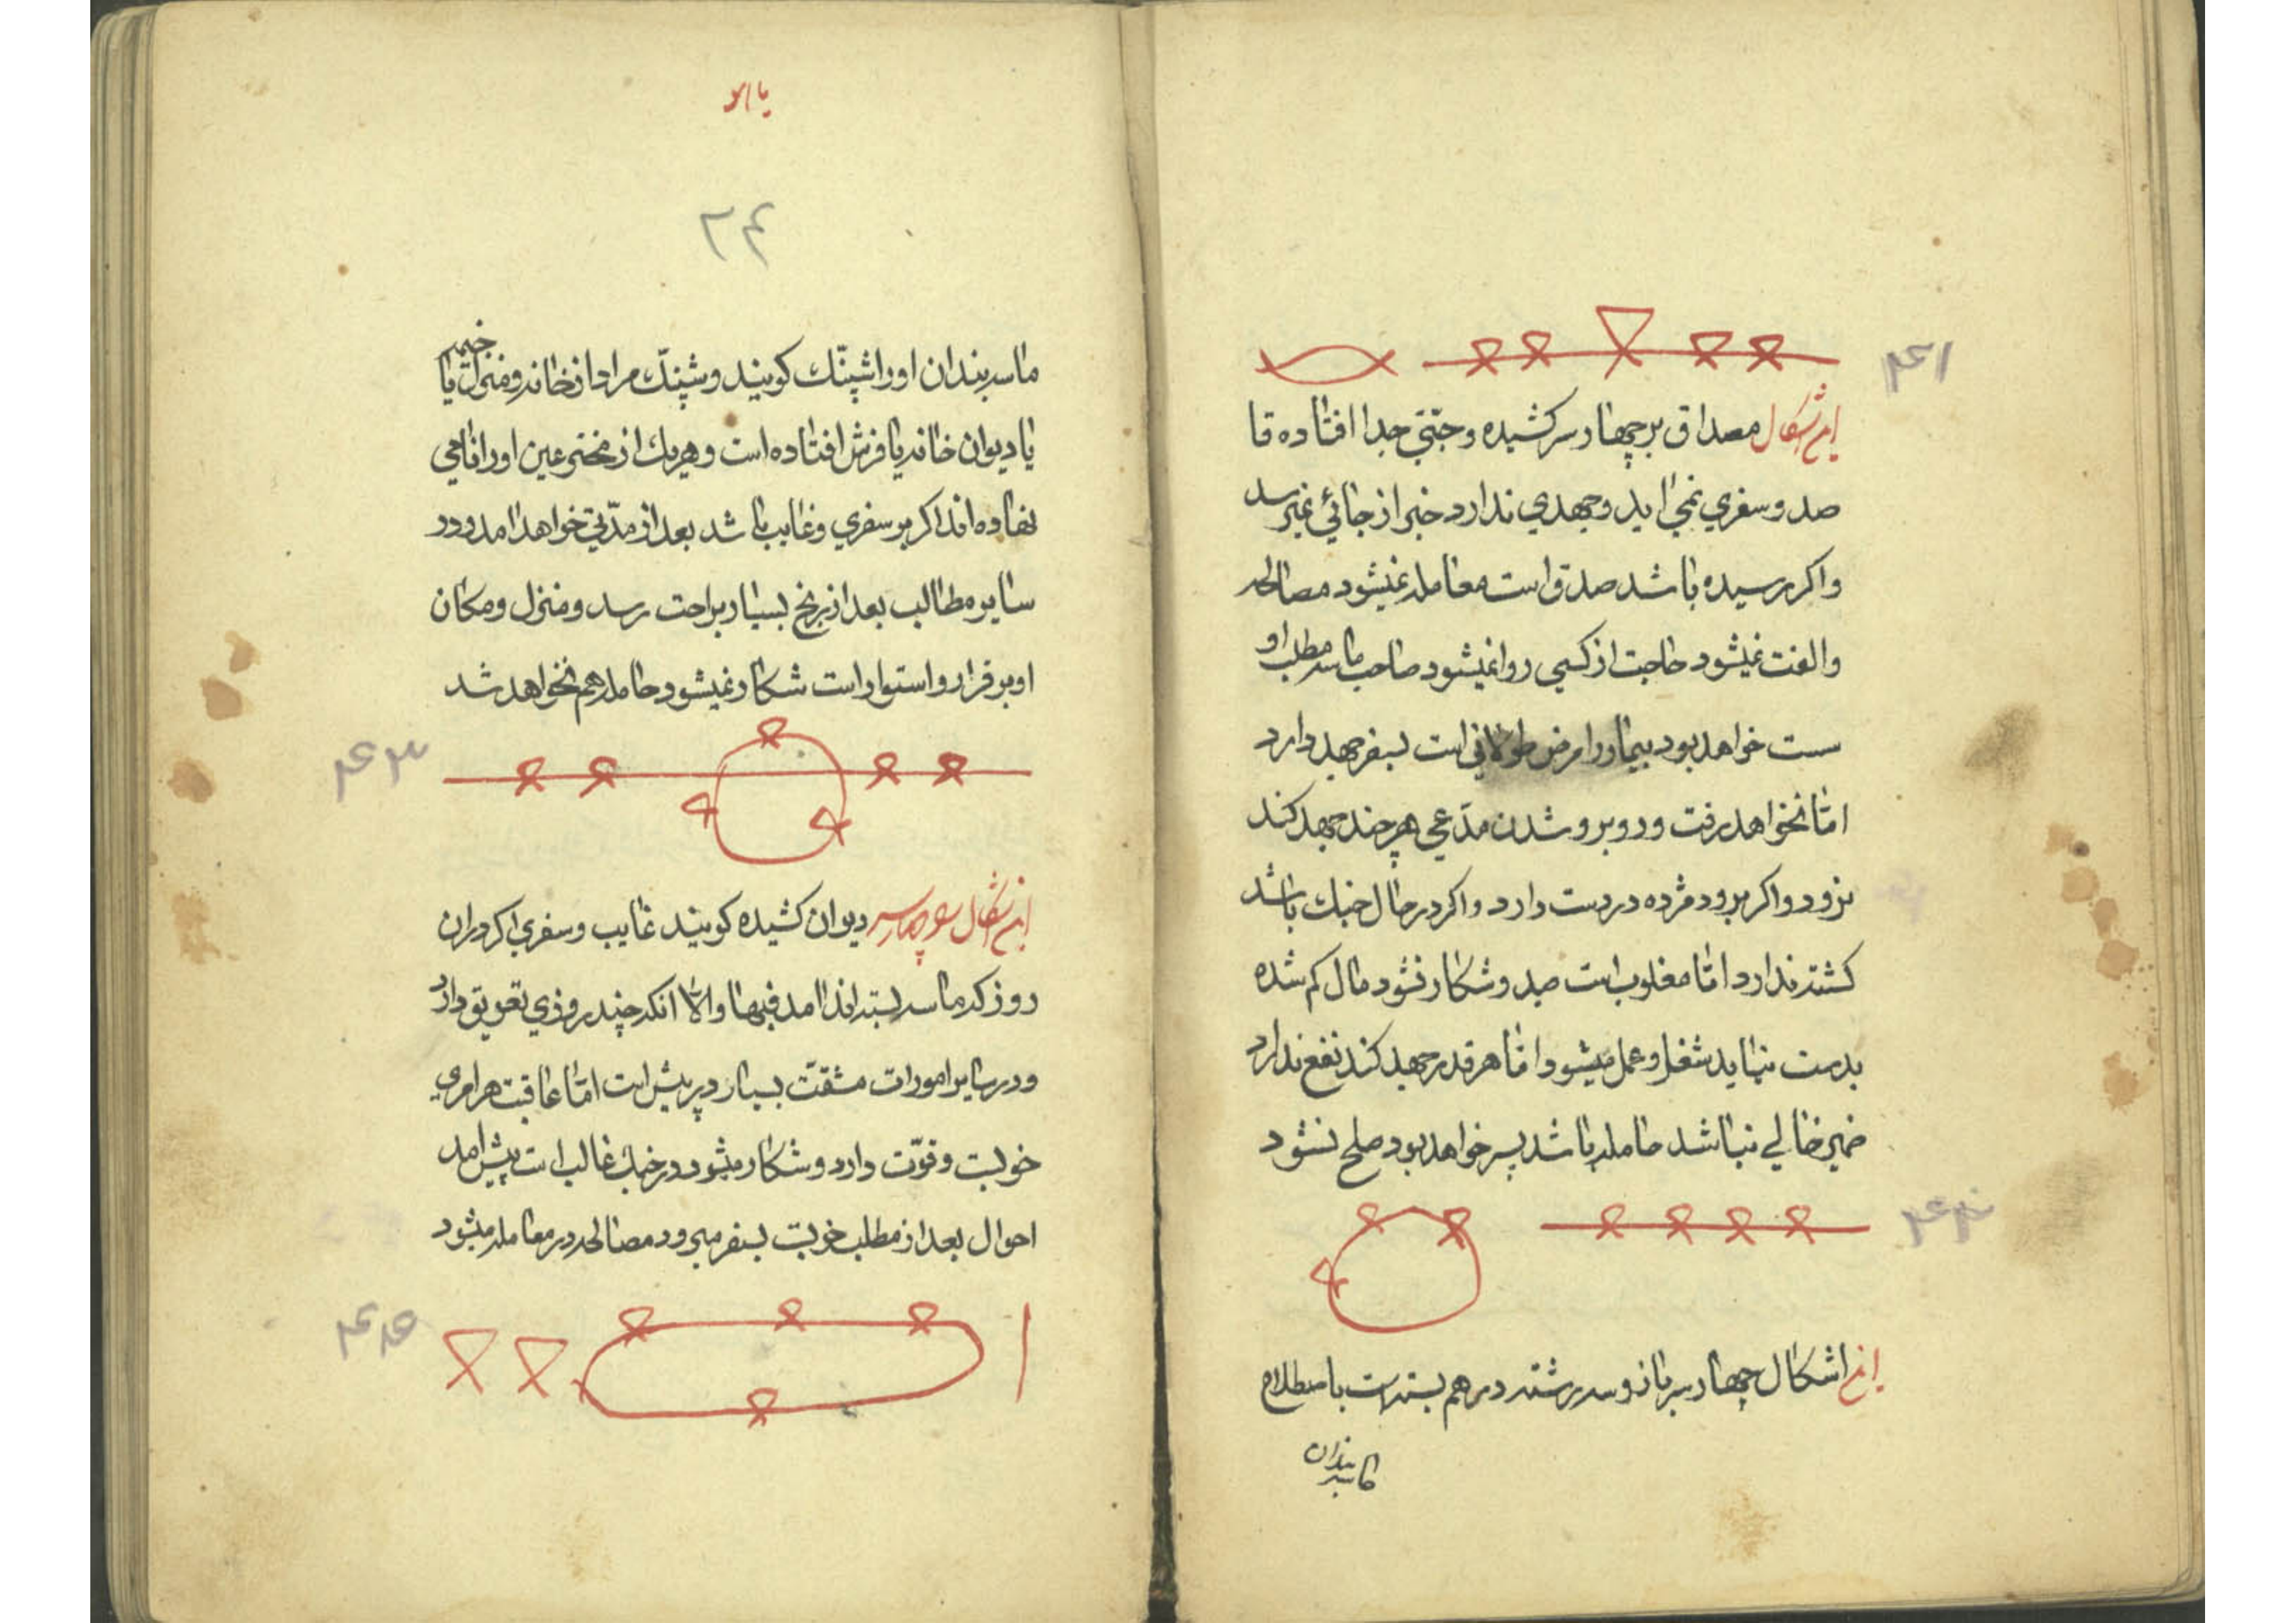 ۴۱
این اشکال مصداق بر چهار سر کشیده و جتّی جدا افتاده قا
صد و سفری نمی اید و جهدی ندارد خبر از جائی نمیرسد
واکر رسیده باشد صدق است معامله نمیشود مصالحه
والفت نمیشود حاجت از کسی روا نمیشود صاحب ماسه مطلب او
ست خواهد بود بیمار را مرض طولانی است بسفر جهد دارد
امّا نخواهد رفت و روبرو شدن مدّعی هر چند جهد کند
نرود و اکر برود مژده در دست دارد و اکر در حال جنك باشد
کشته ندارد امّا مغلوب است صید و شکار نشود مال کم شده
بدست نیاید شغل و عمل میشود امّا هر قدر جهد کند نفع ندارد
ضمیر خالی نباشد حامله باشد پسر خواهد بود صلح نشود
۴۲
این اشکال چهار سر باز و سه رشته در هم بسته است باصطلاح
ماسه بندان
یا
۲۴
ماسه بندان او را شپنّك کویند و شپنّك مراد از خانه و منزل یا خیمه
یا دیوان خانه یا فرش افتاده است و هریك از مخترعین او را نامی
نهاده اند اکر بر سفری و غایب باشد بعد از مدّتی خواهد امد و در
سایر مطالب بعد از رنج بسیار براحت رسد و منزل و مکان
او برقرار و استوار است شکار نمیشود حامله هم نخواهد شد
۴۳
این اشکال دیوان کشیده کویند غایب و سفری اکر در ان
روز که ماسه بسته اند امد فبها والّا انکه چند روزی تعویق دارد
و در سایر امورات مشقّت بسیار در پیش است امّا عاقبت هر امری
خوبست و قوّت دارد و شکار میشود در جنك غالب است پیش امد
احوال بعد از مطلب خوبست بسفر میرود مصالحه در معامله میشود
۴۴